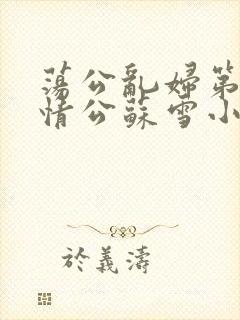 蕩公亂婦第
情公蘇雪小
於義濤